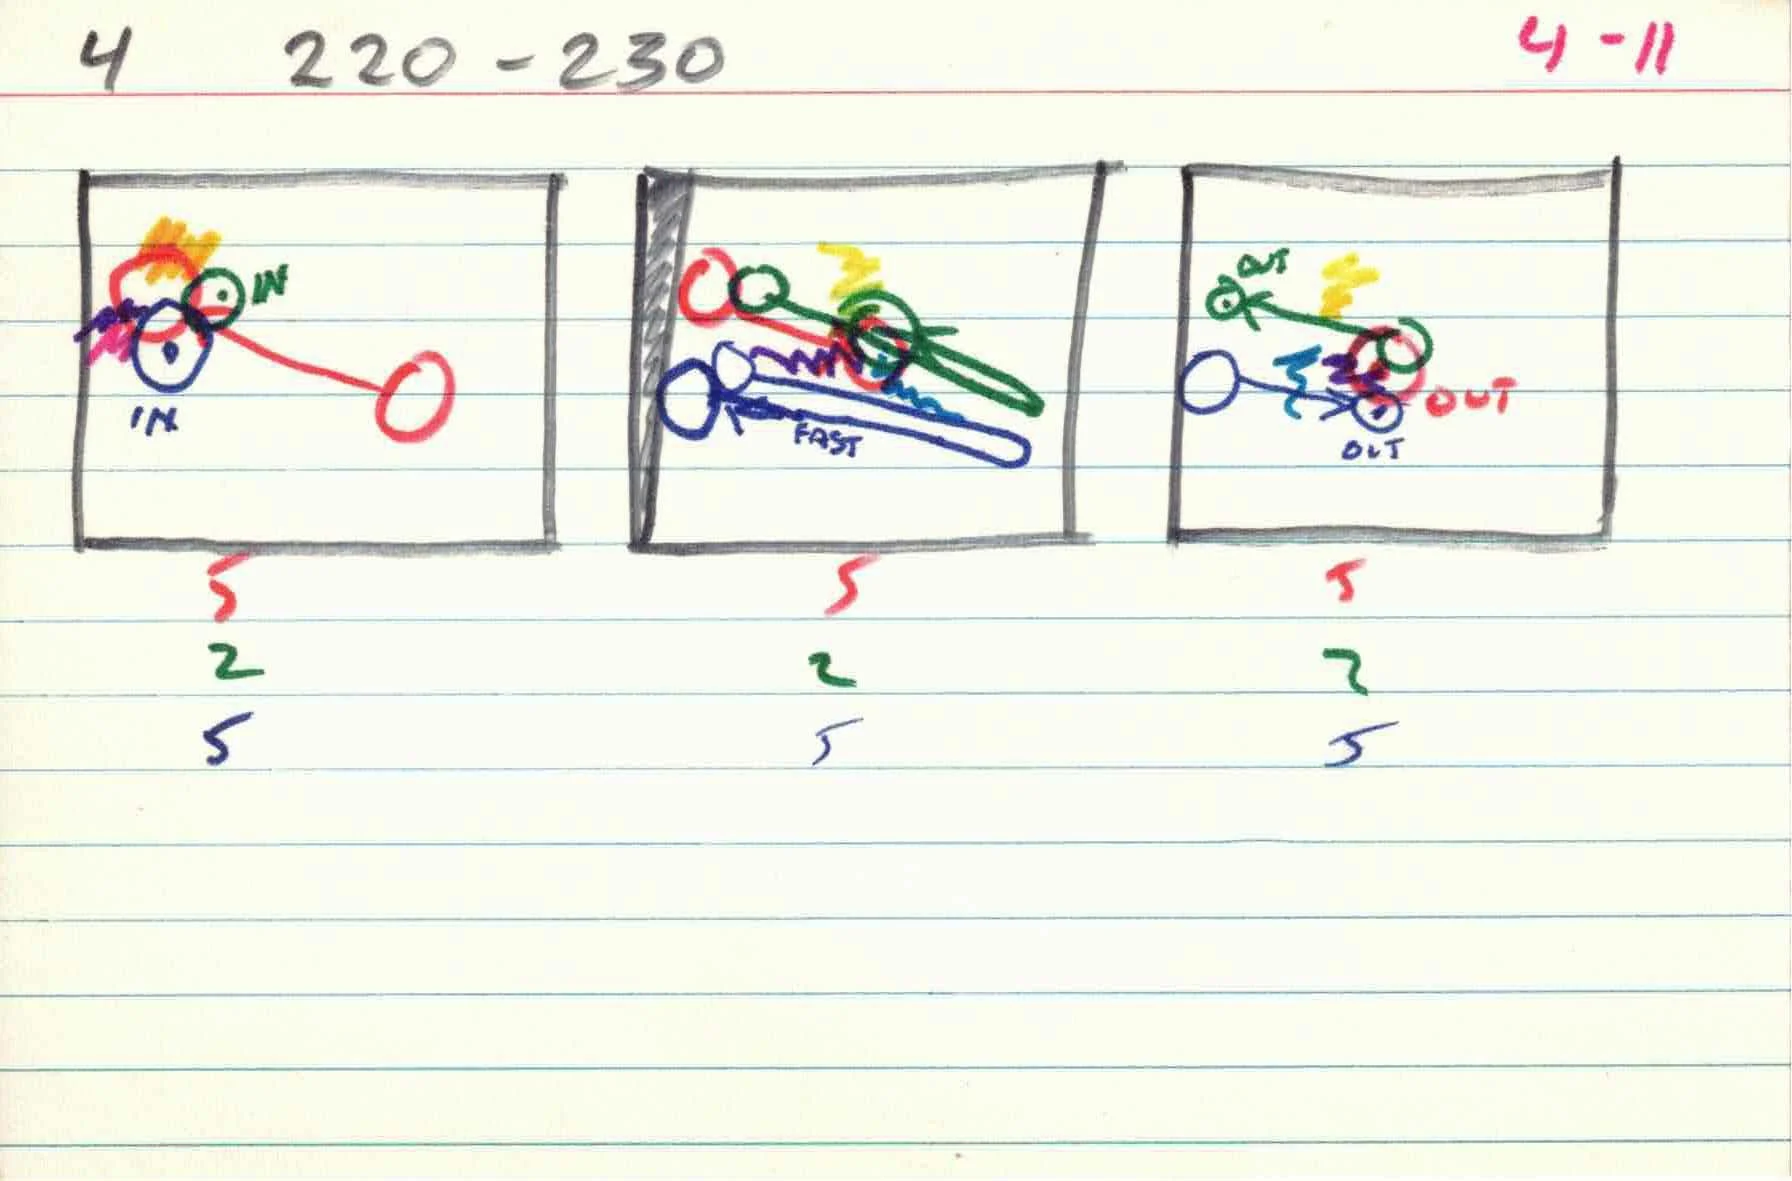 4 220-230 4-11
IN
IN
FAST
OUT
OUT
OUT
5 5 5
2 2 2
5 5 5